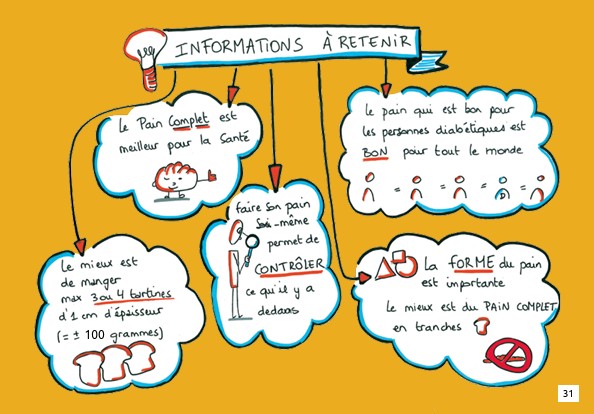 INFORMATIONS À RETENIR
Le Pain Complet est
meilleur pour la Santé
Le pain qui est bon pour
les personnes diabétiques est
BON pour tout le monde
= = = D =
faire son pain
Soi-même
permet de
CONTRÔLER
ce qu'il y a
dedans
Le mieux est
de manger
max 3 ou 4 tartines
d'1 cm d'épaisseur
(= ± 100 grammes)
La FORME du pain
est importante
Le mieux est du PAIN COMPLET
en tranches
31